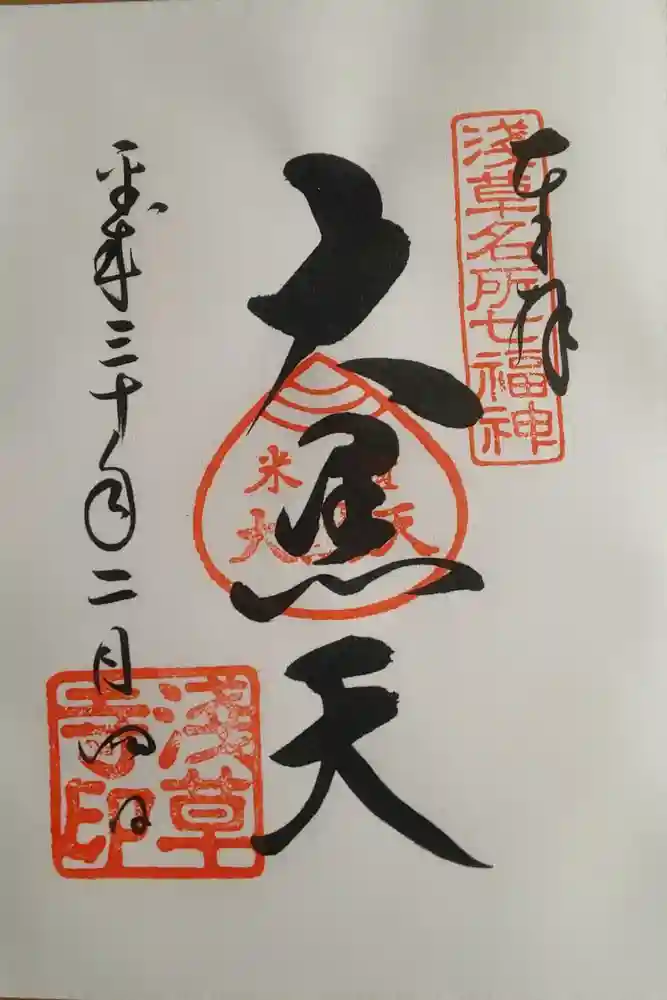 奉拝
浅草名所七福神
大黒天
米
天
平成三十年二月四日
浅草
寺印